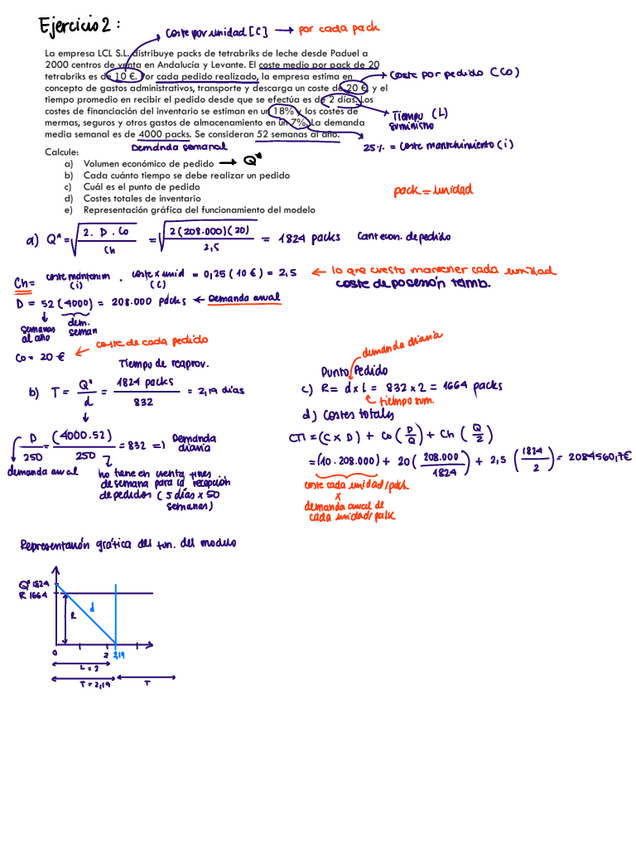 Ejercicio 2:
Coste por unidad [C] → por cada pack
La empresa LCL S.L. distribuye packs de tetrabriks de leche desde Paduel a
2000 centros de venta en Andalucía y Levante. El coste medio por pack de 20
tetrabriks es de 10 €. Por cada pedido realizado, la empresa estima en
→ Coste por pedido (Co)
concepto de gastos administrativos, transporte y descarga un coste de 20 € y el
tiempo promedio en recibir el pedido desde que se efectúa es de 2 días. Los
→ Tiempo (L) suministro
costes de financiación del inventario se estiman en un 18% y los costes de
mermas, seguros y otros gastos de almacenamiento en un 7%. La demanda
media semanal es de 4000 packs. Se consideran 52 semanas al año.
Demanda semanal
25% = coste mantenimiento (i)
Calcule:
a) Volumen económico de pedido → Q*
b) Cada cuánto tiempo se debe realizar un pedido
c) Cuál es el punto de pedido
d) Costes totales de inventario
e) Representación gráfica del funcionamiento del modelo
pack = unidad
a) Q* = √(2. D. Co / Ch) = √(2(208.000)(20) / 2,5) = 1824 packs Cant econ. de pedido
Ch = coste mantenim (i) . coste x unid (C) = 0,25 (10 €) = 2,5 ← lo que cuesta mantener cada unidad
coste de posesión tamb.
D = 52 (4000) = 208.000 packs ← Demanda anual
semanas al año
dem. seman
Co = 20 € ← coste de cada pedido
Tiempo de reaprov.
b) T = Q* / d = 1824 packs / 832 = 2,19 días
D / 250 = (4000.52) / 250 = 832 => Demanda diaria
demanda anual
no tiene en cuenta fines
de semana para la recepción
de pedidos (5 días x 50
semanas)
demanda diaria
Punto Pedido
c) R = d x L = 832 x 2 = 1664 packs
tiempo sum.
d) Costes totales
CT = (C x D) + Co (D/Q) + Ch (Q/2)
= (10. 208.000) + 20 (208.000 / 1824) + 2,5 (1824 / 2) = 2084560,7€
coste cada unidad/pack
x
demanda anual de
cada unidad/pack
Representación gráfica del fun. del modelo
Q* 1824
R 1664
R
d
0 2 2,19
L = 2
T = 2,19
T